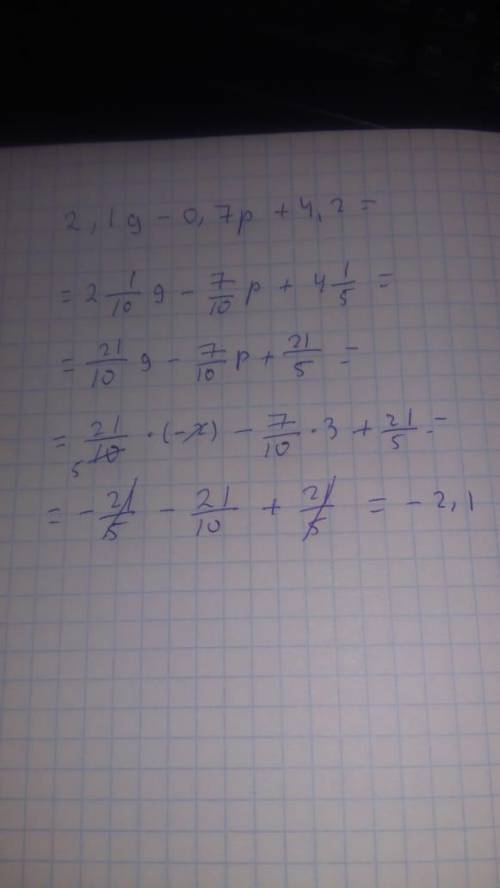 2,1g - 0,7p + 4,2 =
= 2 1/10 g - 7/10 p + 4 1/5 =
= 21/10 g - 7/10 p + 21/5 =
= 21/10 5 · (-2) - 7/10 · 3 + 21/5 =
= - 21/5 - 21/10 + 21/5 = - 2,1